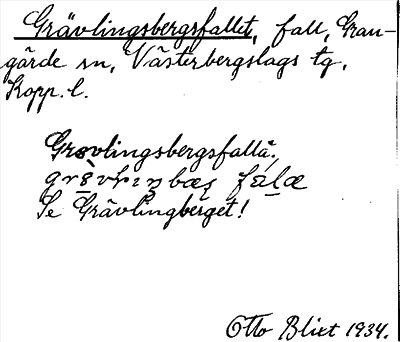 Grävlingsbergsfallet, fall, Gran-
gärde sn, Västerbergslags tg,
Kopp. l.
Grävlingsbergsfallä,
Se Grävlingberget!
Otto Blixt 1934.